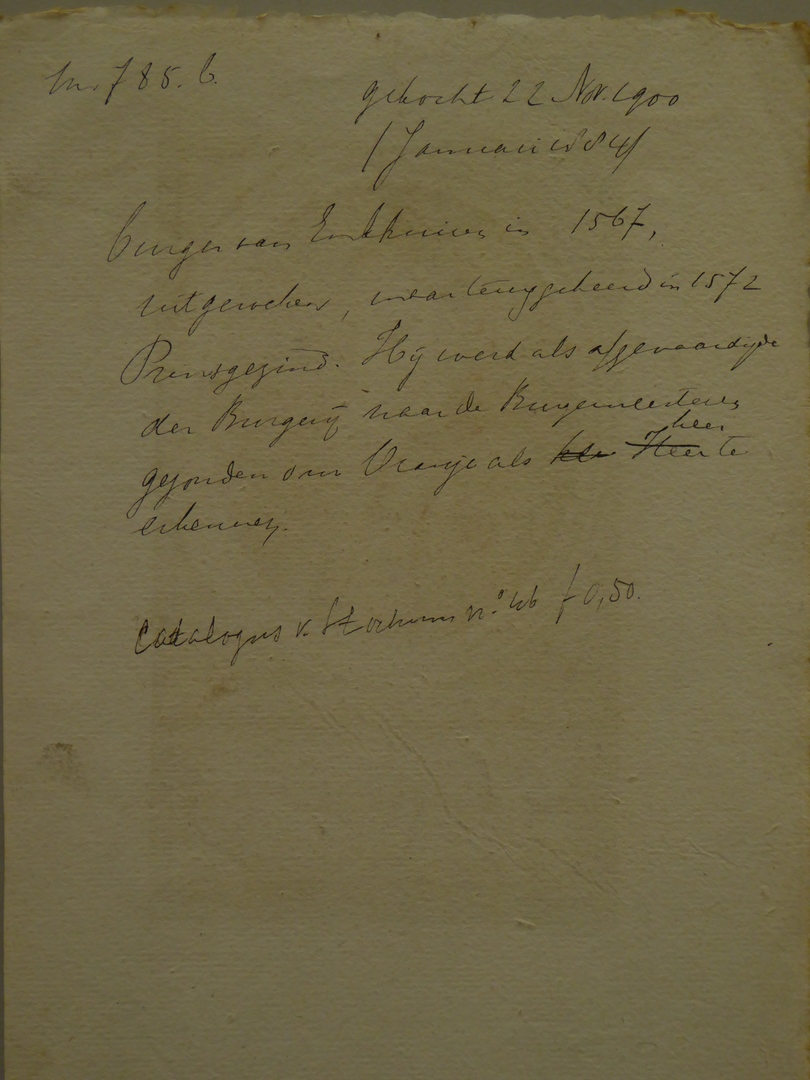 In. 785. b.
gekocht 22 Nov. 1900
/Januari 1884/
burger van Enkhuizen in 1567,
uitgeweken, maar teruggekeerd in 1572
Prinsgezind. Hij werd als afgevaardigde
der Burgerij naar de Burgemeesteren
heer
gezonden om Oranje als Heer te
erkennen.
Catalogus v. Stockum no. 46 f 0,50.